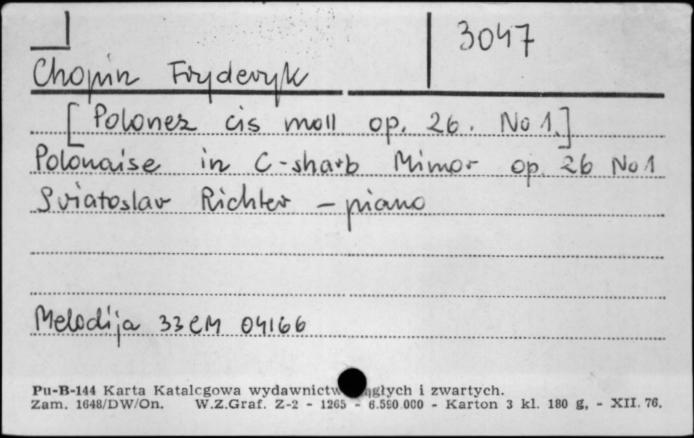 3047
Chopin Fryderyk
[Polonez cis moll op. 26. No 1.]
Polonaise in C-sharp Minor op. 26 No 1
Sviatoslav Richter - piano
Melodija 33CM 04166
Pu-B-144 Karta Katalogowa wydawnictw i zwartych.
Zam. 1648/DW/On. W.Z.Graf. Z-2 - 1265 - 6.590.000 - Karton 3 kl. 180 g, - XII. 76.